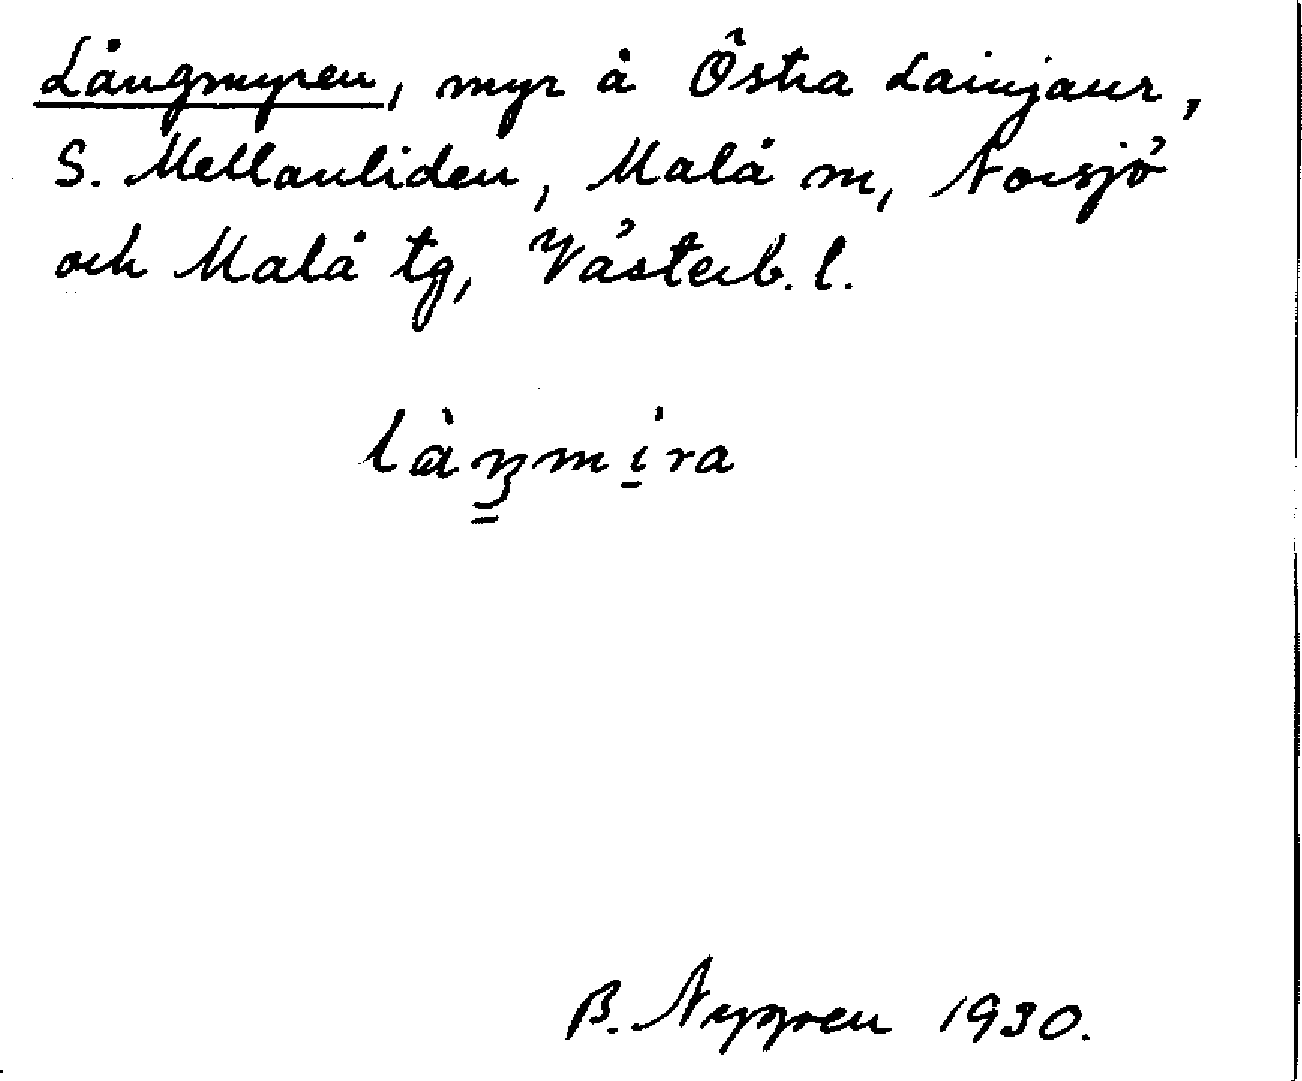 Långmyren, myr å Östra Lainjaur,
S. Mellanliden, Malå m, Norsjö
och Malå tg, Västerb. l.
làŋmíra
B. Nygren 1930.